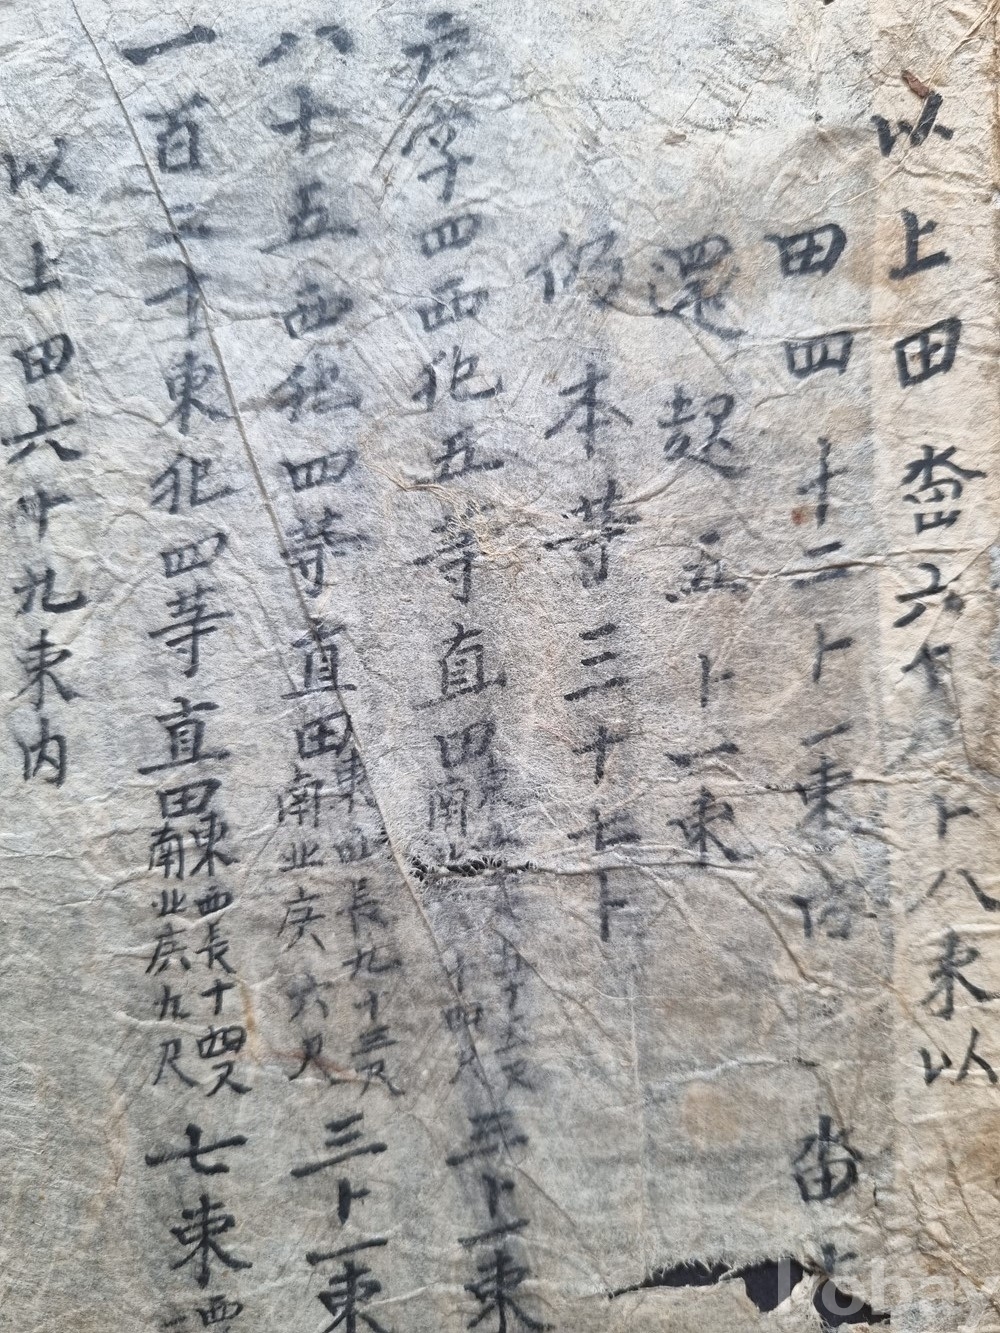 以上田畓六十卜八束以
田四十二卜一束內 畓
還起五卜一束
仍本等三十七卜
字四西北五等直田 南北 三卜一束
八十五西北四等直田東西長九十三尺南北広六尺三卜一束
一百二十東北四等直田東西長十四尺南北広九尺七束 西
以上田六十九束內
hobay